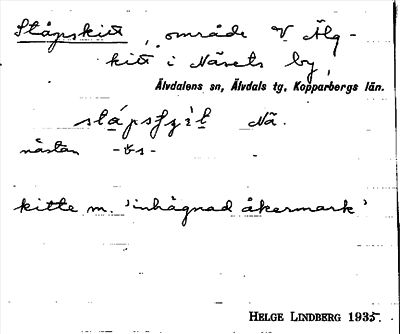 Ståpskitt, område V Älg-
kitt i Näsets by,
Älvdalens sn, Älvdals tg, Kopparbergs län.
Nä.
nästan
kitte m. 'inhägnad åkermark'
HELGE LINDBERG 1935.